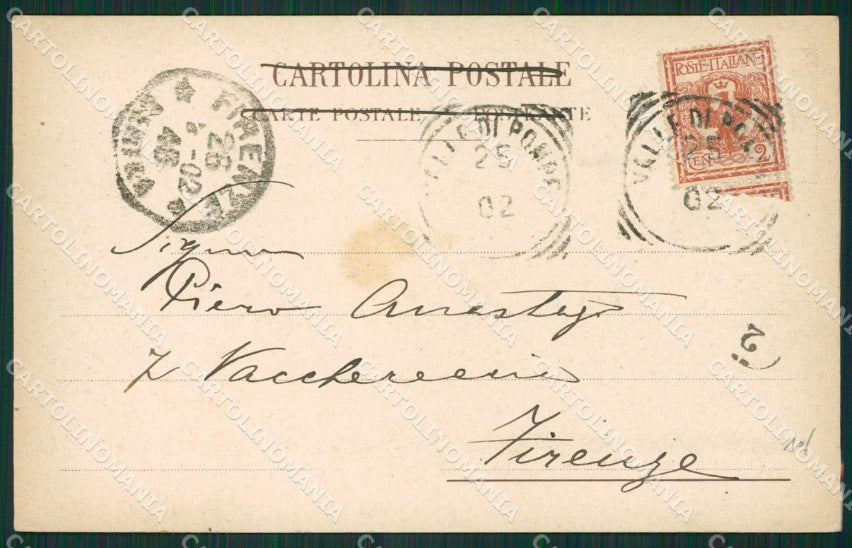 CARTOLINA POSTALE
CARTE POSTALE
POSTE ITALIANE
CENT 2
FIRENZE
26
4-02
4S
VALLE DI POMPEI
25
02
VALLE DI POMPEI
25
02
Signor
Piero Anastagi
7 Vacchereccia
Firenze
2
CARTOLINOMANIA